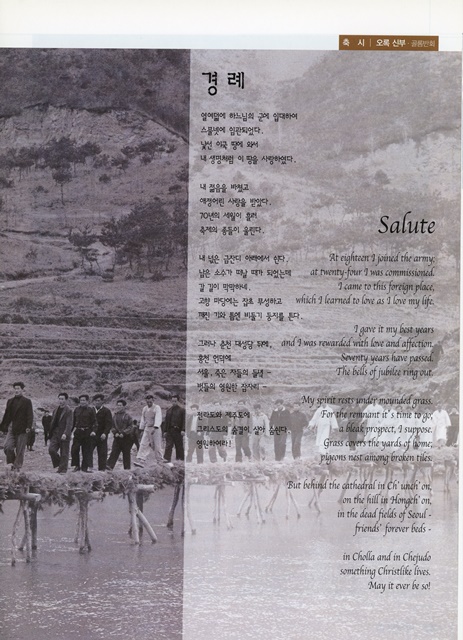 축 시 | 오록 신부 · 골롬반회
경 례
열여덟에 하느님의 군에 입대하여
스물넷에 임관되었다.
낯선 이국 땅에 와서
내 생명처럼 이 땅을 사랑하였다.
내 젊음을 바쳤고
애정어린 사랑을 받았다.
70년의 세월이 흘러
축제의 종들이 울린다.
내 넋은 금잔디 아래에서 쉰다.
남은 소수가 떠날 때가 되었는데
갈 길이 막막하네.
고향 마당에는 잡초 무성하고
깨진 기와 틈엔 비둘기 둥지를 튼다.
그러나 춘천 대성당 뒤에,
홍천 언덕에
서울, 죽은 자들의 들녘 -
벗들의 영원한 잠자리 -
전라도와 제주도에
그리스도의 숨결이 살아 숨쉰다.
영원하여라!
Salute
At eighteen I joined the army;
at twenty-four I was commissioned.
I came to this foreign place,
which I learned to love as I love my life.
I gave it my best years
and I was rewarded with love and affection.
Seventy years have passed.
The bells of jubilee ring out.
My spirit rests under mounded grass.
For the remnant it's time to go;
a bleak prospect, I suppose.
Grass covers the yards of home;
pigeons nest among broken tiles.
But behind the cathedral in Ch'unch'on,
on the hill in Hongch'on,
in the dead fields of Seoul -
friends' forever beds -
in Cholla and in Chejudo
something Christlike lives.
May it ever be so!